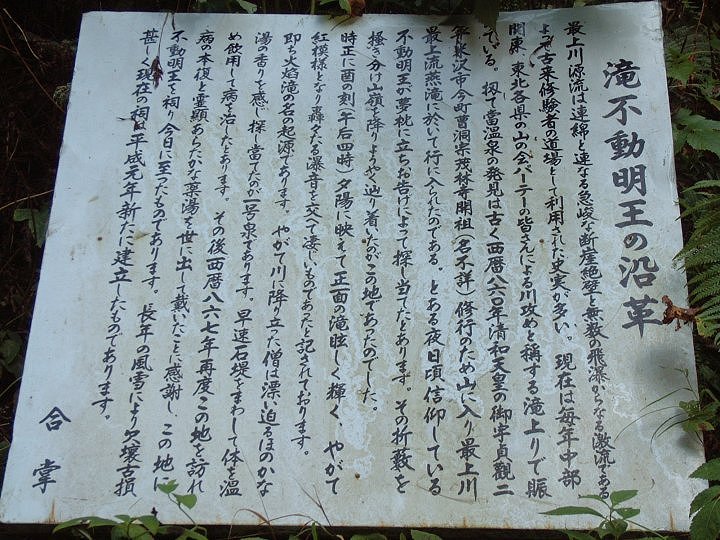 滝不動明王の沿革
最上川源流は連綿と連なる急峻な断崖絶壁と無数の飛瀑からなる激流である
よって古来修験者の道場として利用された史実が多い。現在は毎年中部
関東、東北各県の山の会パーテーの皆さんによる川攻めと称する滝上りで賑
っている。扨て当温泉の発見は古く西暦八六〇年清和天皇の御宇貞観二
年米沢市今町曹洞宗茂林寺開祖(名不詳)修行のため山に入り最上川
最上流燕滝に於いて行に入られたのである。とある夜日頃信仰している
不動明王が夢枕に立ちお告げによって探し当てたとあります。その折薮を
掻き分け山嶺を降りようやく辿り着いたのがこの地であったのでした。
時正に酉の刻(午后四時)夕陽に映えて正面の滝眩しく輝く、やがて
紅模様となり轟々たる瀑音を交へて凄しいものであったと記されております。
即ち火焔滝の名の起源であります。やがて川に降り立った僧は漂い迫るほのかな
湯の香りを感じ探し当てたのが一号泉であります。早速石堤をまわして体を温
め飲用して病を治したとあります。その後西暦八六七年再度この地を訪れ
病の本復と霊顕あらたかな薬湯を世に出して戴いたことに感謝し、この地に
不動明王を祠り今日に至ったものであります。長年の風雪により欠壊古損
甚しく現在の祠は平成元年新たに建立したものであります。
合掌